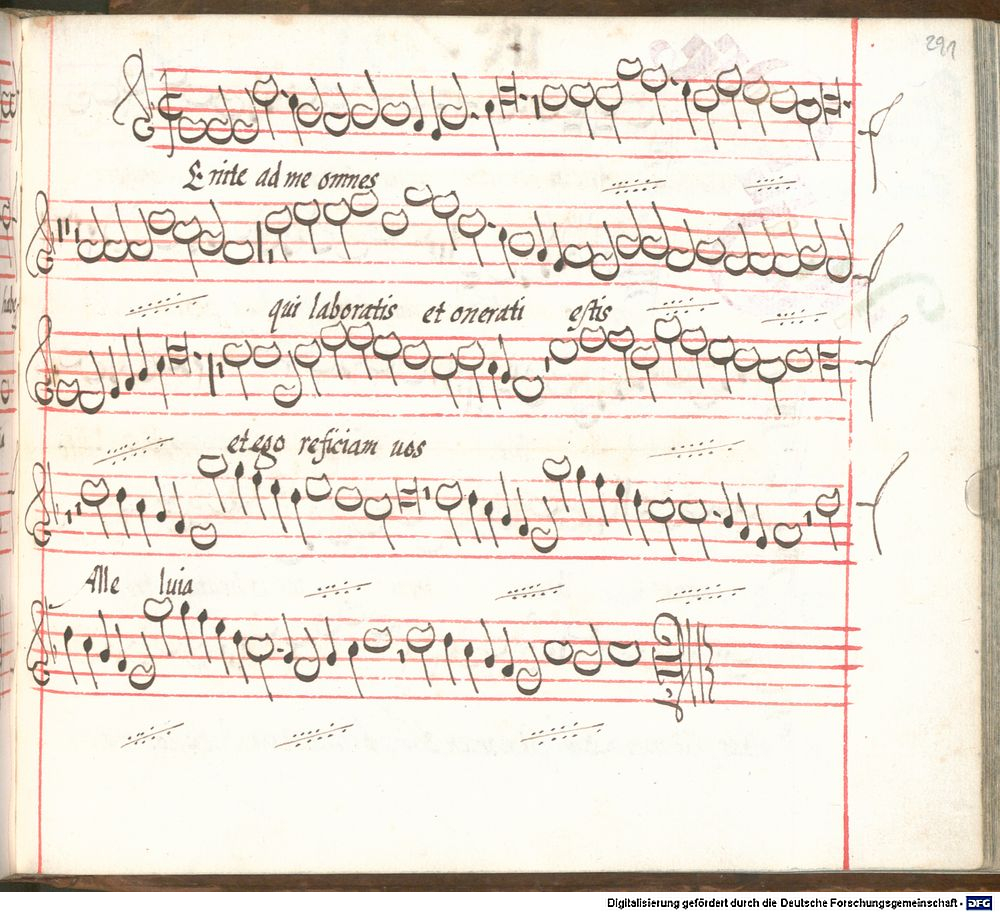 291
Enite ad me omnes
qui laboratis et onerati estis
et ego reficiam vos
Alle luia
Digitalisierung gefördert durch die Deutsche Forschungsgemeinschaft - DFG